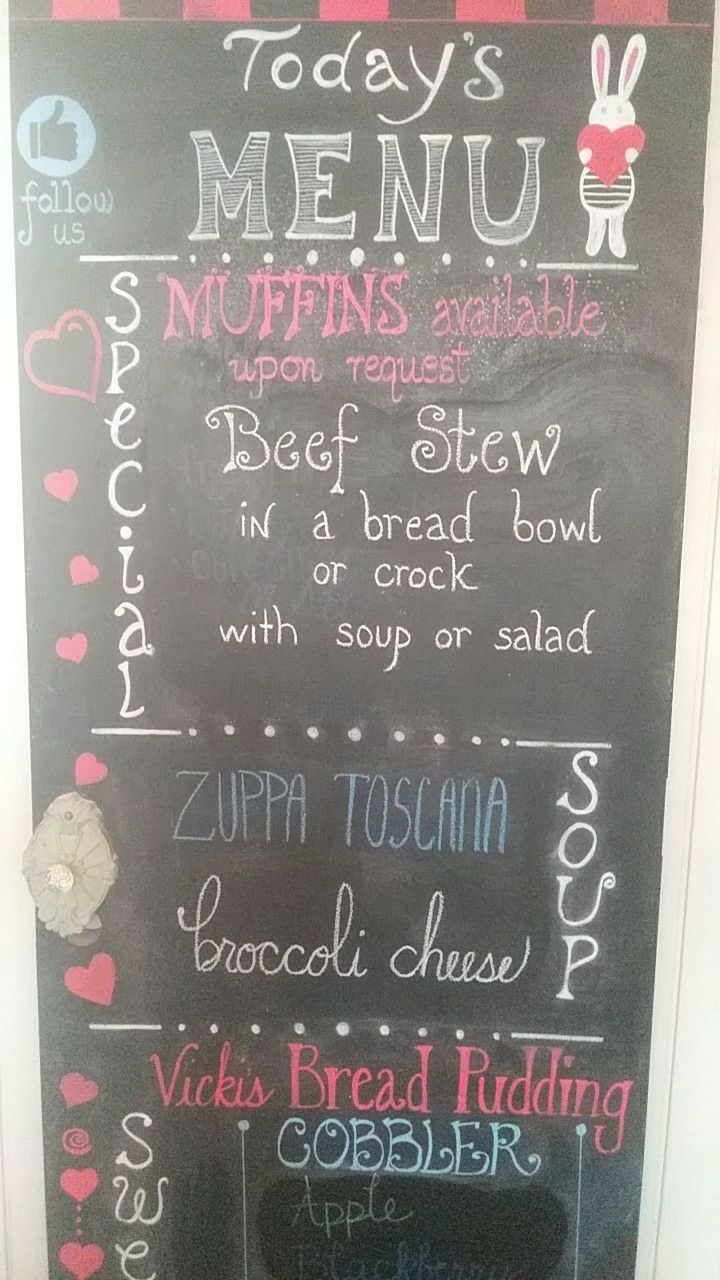 Today's
MENU
follow
us
SPeCiaL
MUFFINS available
upon request
Beef Stew
in a bread bowl
or crock
with soup or salad
SOUP
ZUPPA TOSCANA
broccoli cheese
Vicki's Bread Pudding
Swe
COBBLER
Apple
Blackberry